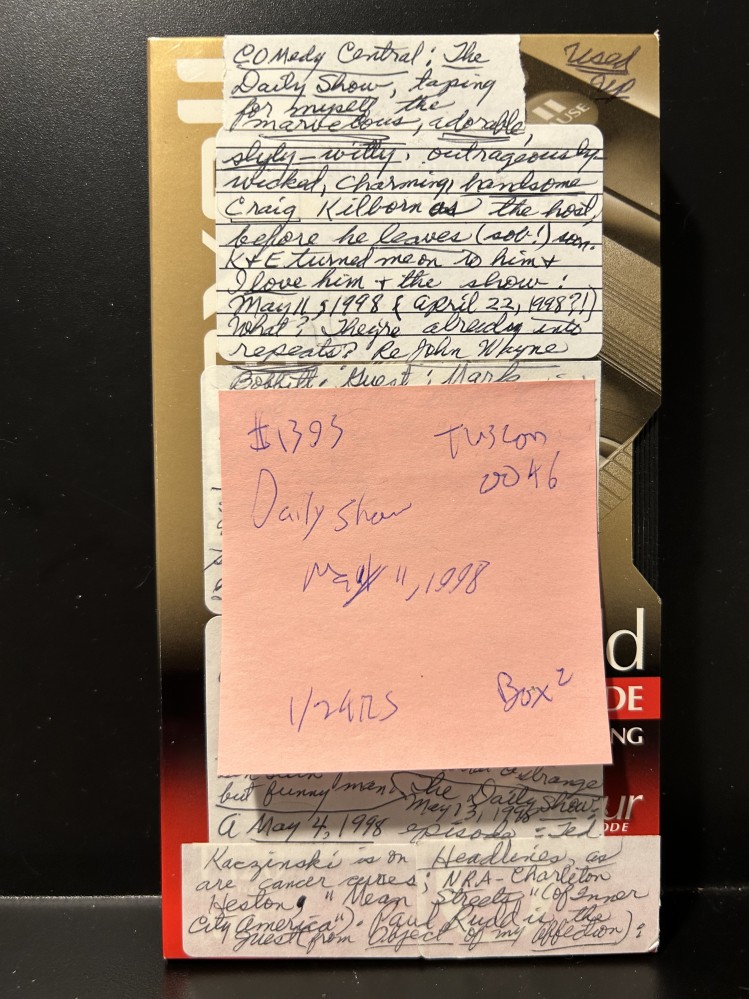 Comedy Central: The
Daily Show, taping
for myself the
marvelous, adorable,
slyly-witty, outrageously-
wicked, charming, handsome
Craig Kilborn as the host,
before he leaves (sob!) soon.
K+E turned me on to him +
I love him + the show:
May 11, 1998 & April 22, 1998?!)
What? They're already into
repeats? Re John Wayne
Bobbitt. Guest: Mark
Used
Up
USE
$1393
Tuscon
0046
Daily Show
May 11, 1998
Box 2
d
DE
NG
ur
ODE
strange
but funny man. The Daily Show,
May 13, 1998
A May 4, 1998 episode = Ted
Kaczinski is on Headlines, as
are cancer cures; NRA-Charlton
Heston, "Mean Streets" (of Inner
City America"). Paul Rudd is the
guest (from Object of my Affection):